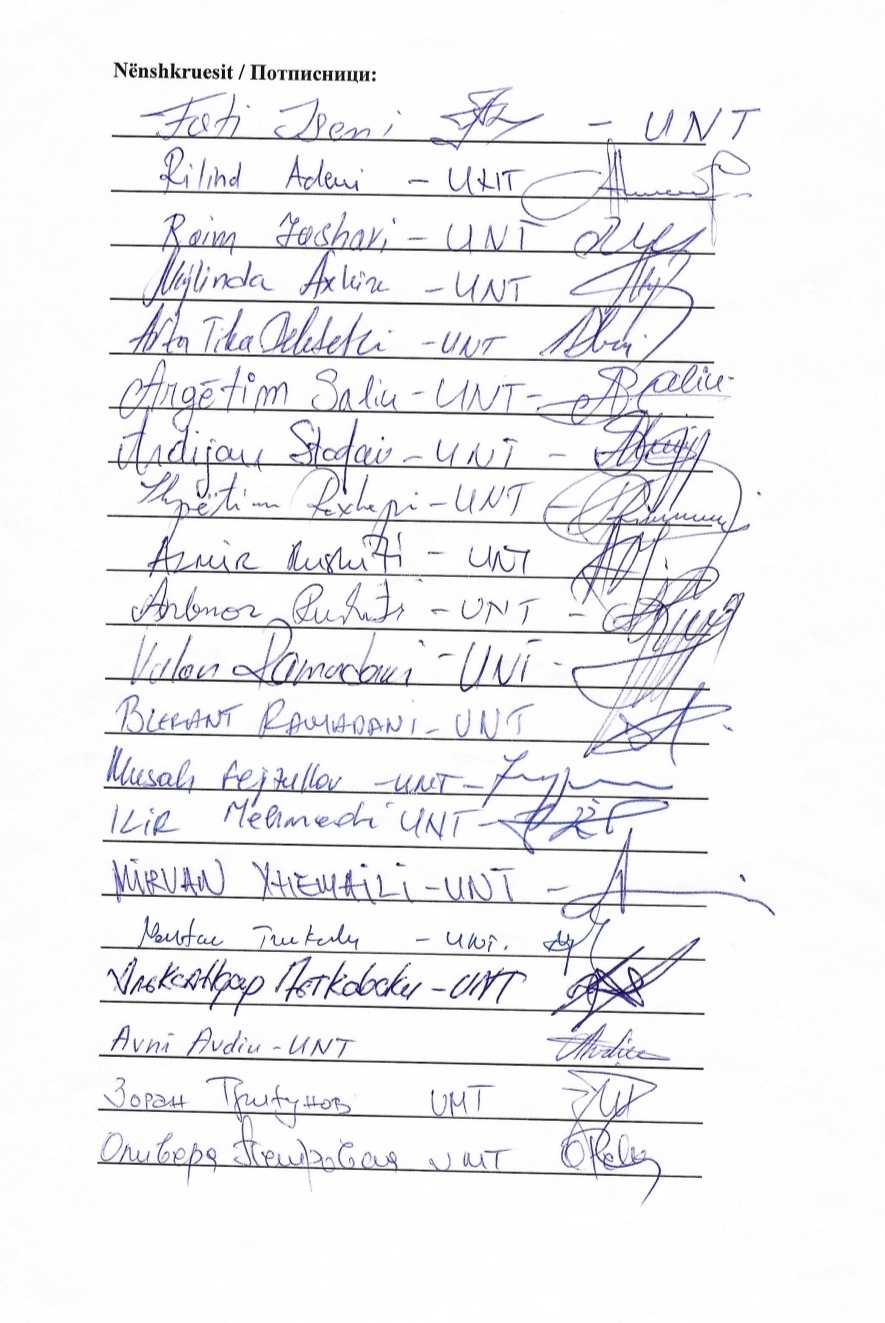 Nënshkruesit / Потписници:
Fati Iseni - UNT
Rilind Ademi - UNT
Raim Jashari - UNT
Mylinda - UNT
Arta Tika - UNT
Argëtim Saliu - UNT - Saliu
Ardijan - UNT -
Shpëtim Rexhepi - UNT
Azmir - UNT
Arbnor - UNT -
Valon Ramadani - UNT -
BLERANT RAMADANI - UNT
Musah Fejzullov - UNT -
ILIR Mehmedi UNT -
MIRVAN XHEMAILI - UNT -
- UNT.
Александар Петковски - UMT
Avni Avdiu - UNT
Зоран Трифунов UMT
Оливера Петровска UMT